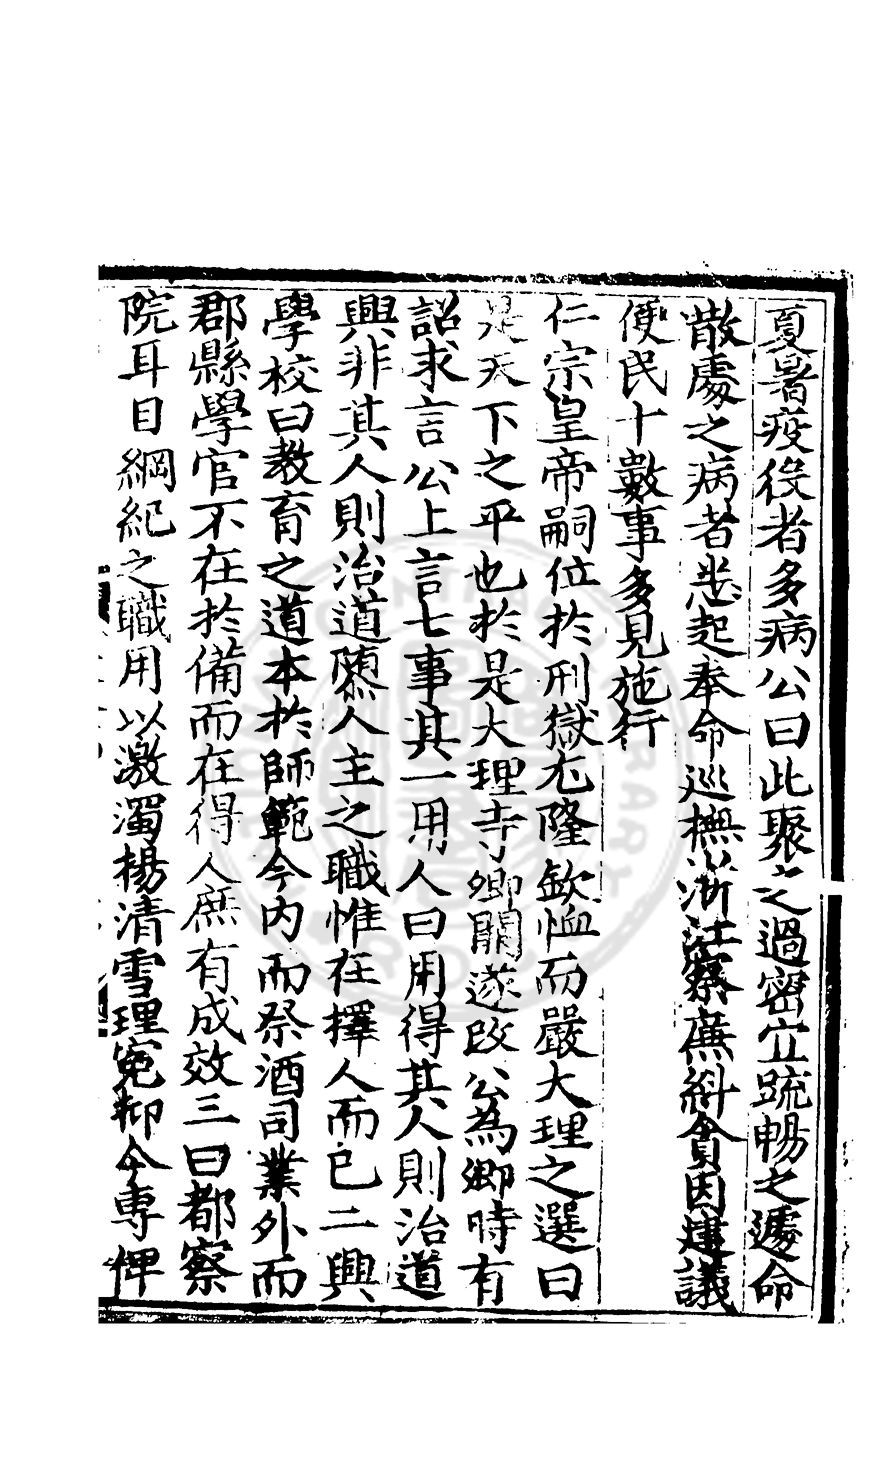 夏暑疫役者多病公曰此聚之過密宜疏暢之遽命
散處之病者悉起奉命巡撫浙江察廉糾貪因建議
便民十數事多見施行
仁宗皇帝嗣位於刑獄尤隆欽恤而嚴大理之選曰
是天下之平也於是大理寺卿闕遂改公為卿時有
詔求言公上言七事其一用人曰用得其人則治道
興非其人則治道隳人主之職惟在擇人而已二興
學校曰教育之道本於師範今內而祭酒司業外而
郡縣學官不在於備而在得人庶有成效三曰都察
院耳目綱紀之職用以激濁楊清雪理寃抑今專俾